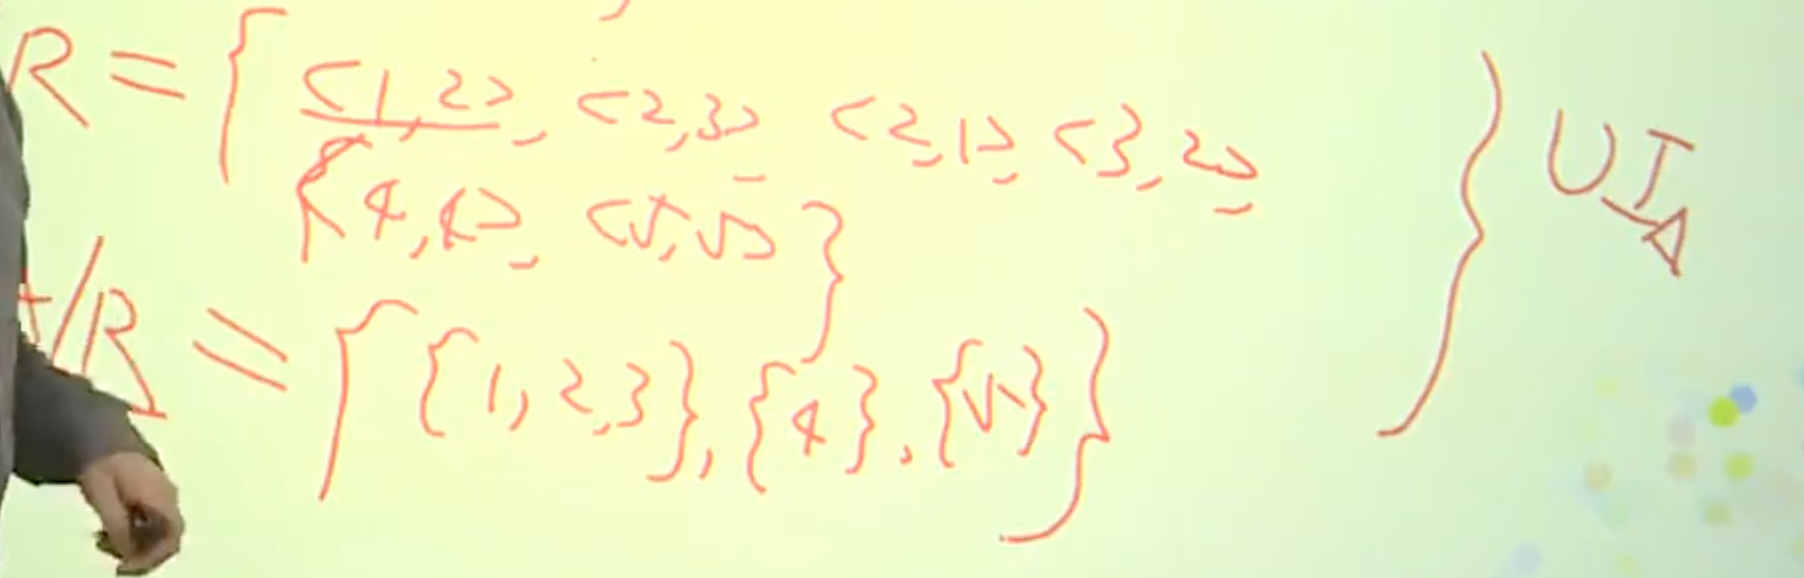 R = { <1,2>, <2,3>, <2,1>, <3,2> } ∪ I_A
{ <4,4>, <5,5> }
A/R = { {1,2,3}, {4}, {5} }